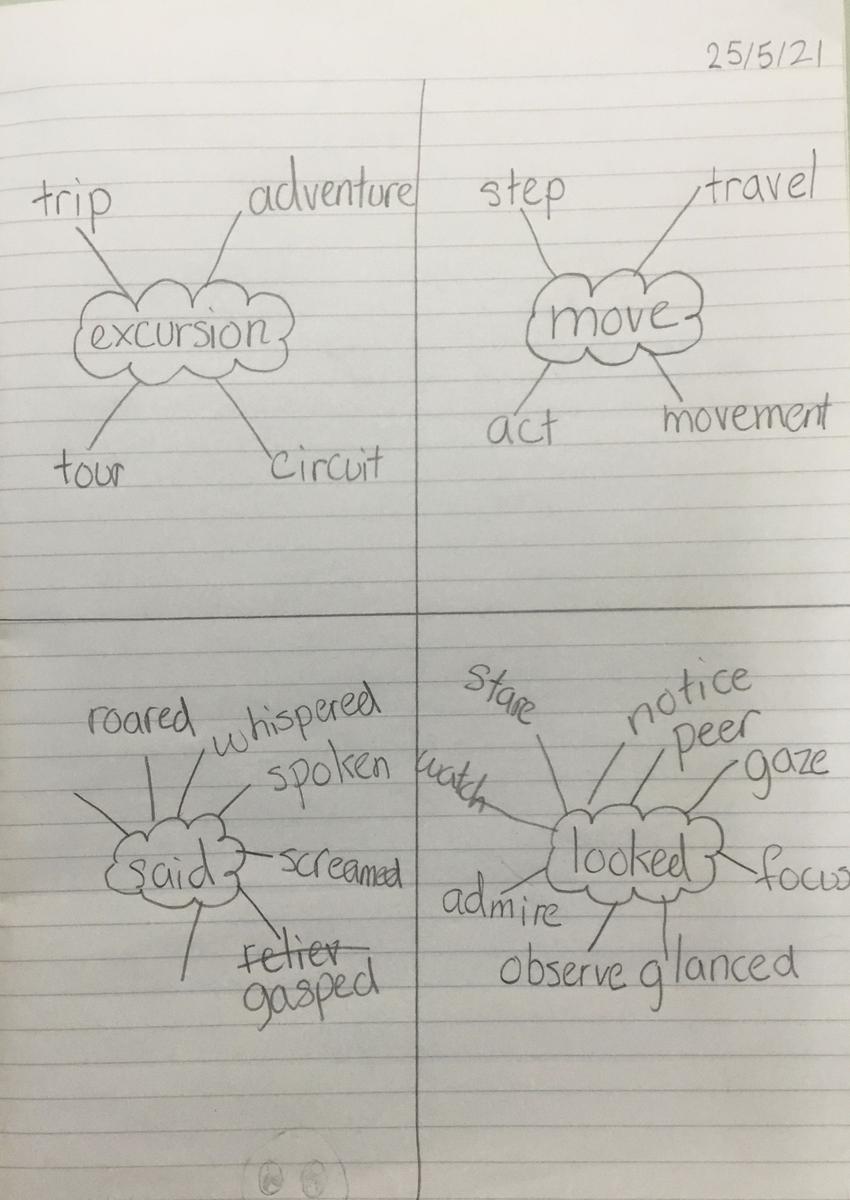 25/5/21
trip
adventure
excursion
tour
circuit
step
travel
move
act
movement
roared
whispered
spoken
said
screamed
gasped
stare
notice
peer
gaze
watch
looked
focus
admire
observe
glanced